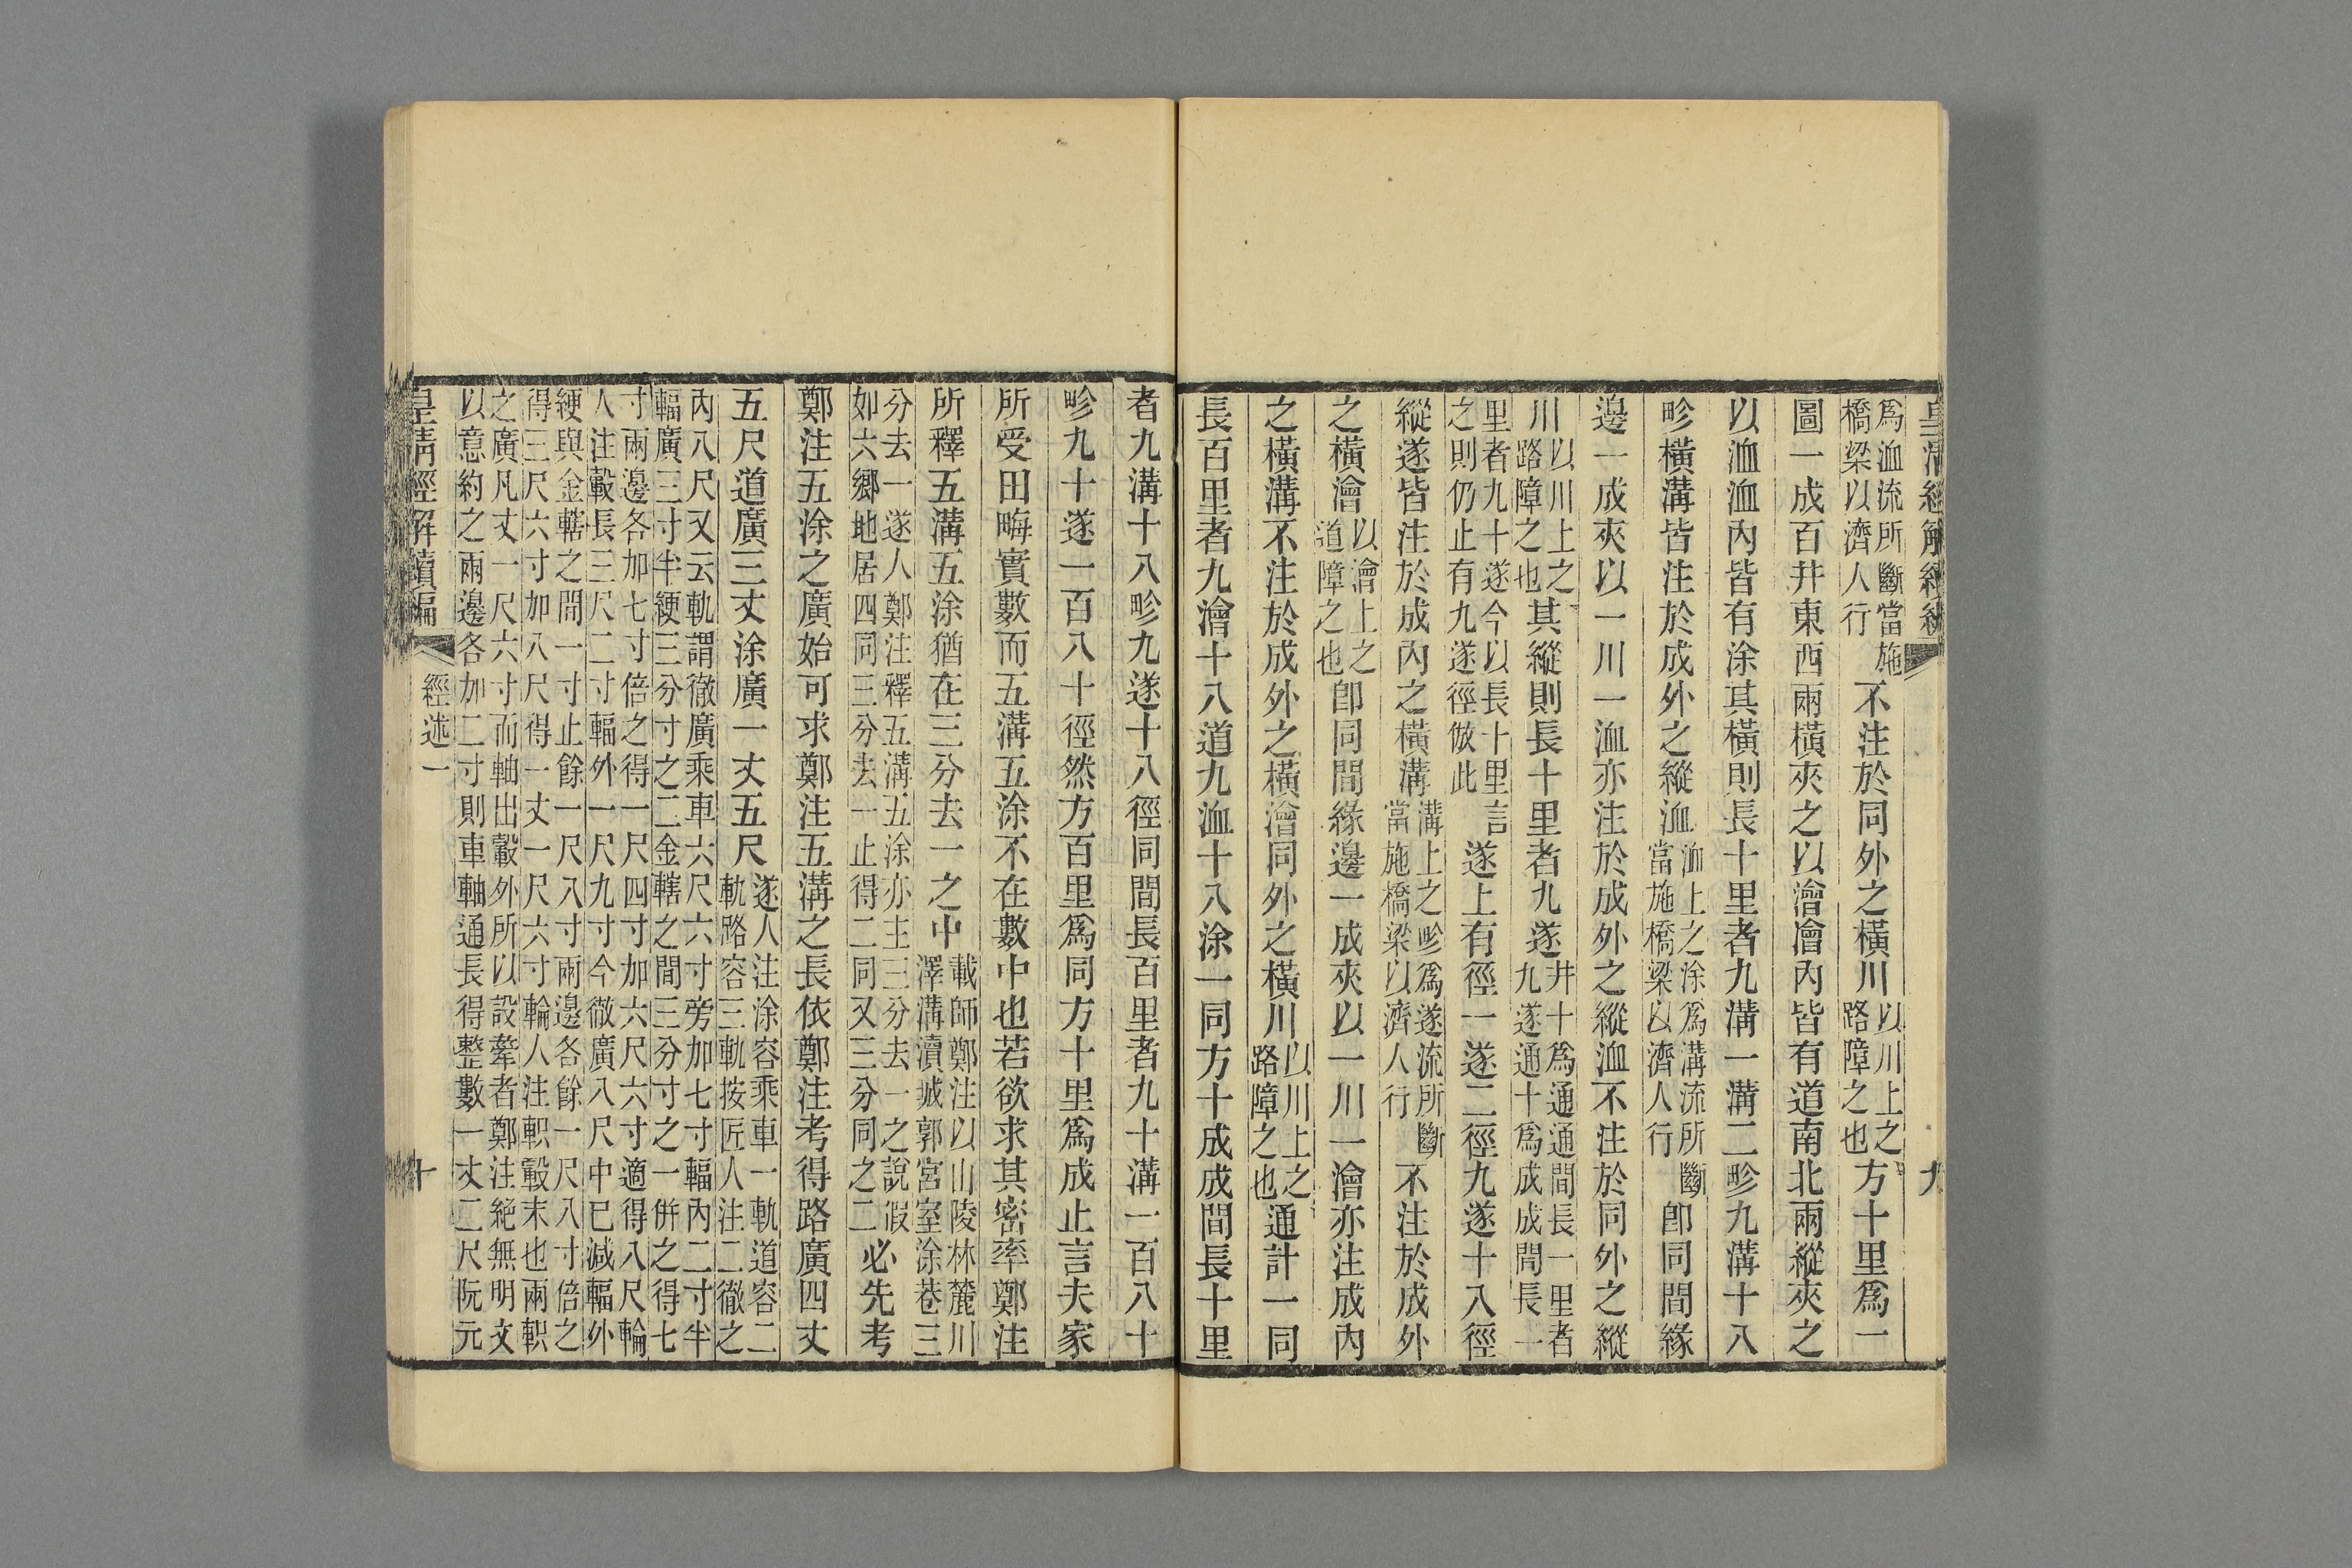 爲洫流所斷當施
橋梁以濟人行
不注於同外之橫川
以川上之
路障之也
方十里爲一
圖一成百井東西兩橫夾之以澮澮內皆有道南北兩縱夾之
以洫洫內皆有涂其橫則長十里者九溝一溝二畛九溝十八
畛橫溝皆注於成外之縱洫
洫上之涂爲溝流所斷
當施橋梁以濟人行
卽同間緣
邊一成夾以一川一洫亦注於成外之縱洫不注於同外之縱
川
以川上之
路障之也
其縱則長十里者九遂
井十爲通通間長一里者
九遂通十爲成成間長一
里者九十遂今以長十里言
之則仍止有九遂徑倣此
遂上有徑一遂二徑九遂十八徑
縱遂皆注於成內之橫溝
溝上之畛爲遂流所斷
當施橋梁以濟人行
不注於成外
之橫澮
以澮上之
道障之也
卽同間緣邊一成夾以一川一澮亦注成內
之橫溝不注於成外之橫澮同外之橫川
以川上之
路障之也
通計一同
長百里者九澮十八道九洫十八涂一同方十成成間長十里
九
者九溝十八畛九遂十八徑同間長百里者九十溝一百八十
畛九十遂一百八十徑然方百里爲同方十里爲成止言夫家
所受田畮實數而五溝五涂不在數中也若欲求其密率鄭注
所釋五溝五涂猶在三分去一之中
載師鄭注以山陵林麓川
澤溝瀆城郭宮室涂巷三
分去一遂人鄭注釋五溝五涂亦主三分去一之說假
如六鄉地居四同三分去一止得二同又三分同之二
必先考
鄭注五涂之廣始可求鄭注五溝之長依鄭注考得路廣四丈
五尺道廣三丈涂廣一丈五尺
遂人注涂容乘車一軌道容二
軌路容三軌按匠人注二徹之
內八尺又云軌謂徹廣乘車六尺六寸旁加七寸輻內二寸半
輻廣三寸半綆三分寸之二金轄之間三分寸之一併之得七
寸兩邊各加七寸倍之得一尺四寸加六尺六寸適得八尺輪
人注轂長三尺二寸輻外一尺九寸今徹廣八尺中已減輻外
綆與金轄之間一寸止餘一尺八寸兩邊各餘一尺八寸倍之
得三尺六寸加八尺得一丈一尺六寸輪人注軹轂末也兩軹
之廣凡丈一尺六寸而軸出轂外所以設舝者鄭注絕無明文
以意約之兩邊各加二寸則車軸通長得整數一丈二尺阮元
皇淸經解續編
經述一
十